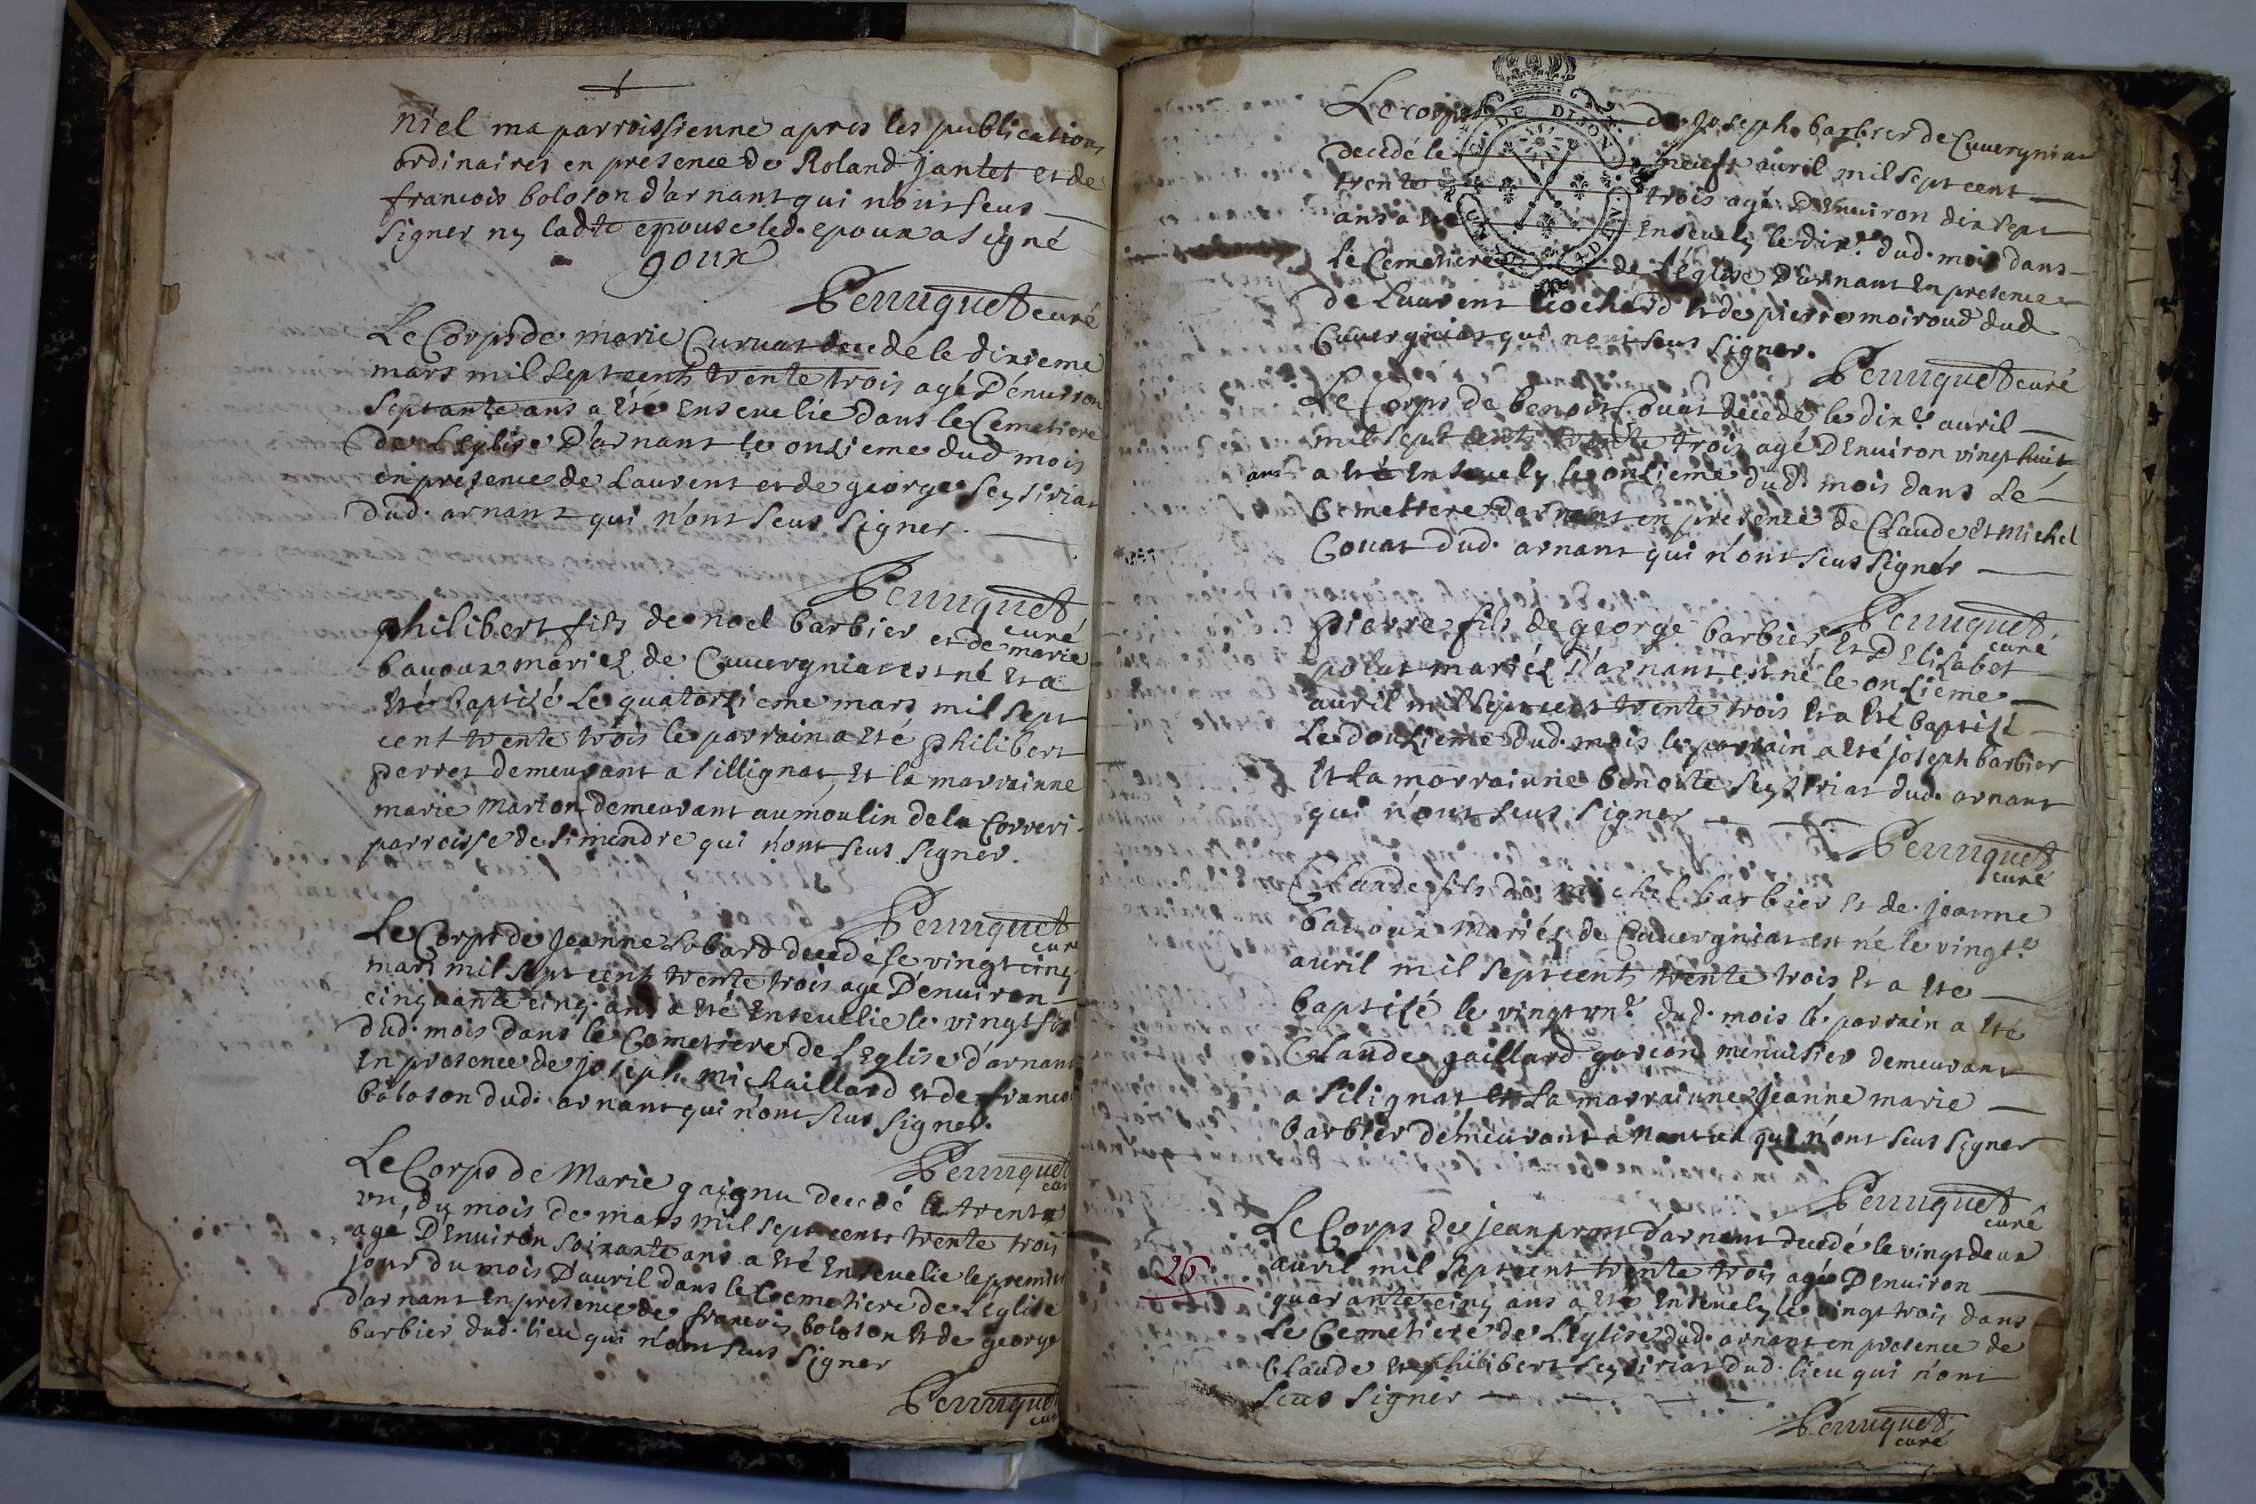 niel ma parroissienne apres les publications
ordinaires en presence de Roland jantet et de
francois boloson d'arnant qui n'ont seus
signer ny ladte epouse led. epoux a signé
goux
Perruquet curé
Le Corps de marie Curvat decedé le dixieme
mars mil sept cents trente trois agé D'enuiron
septante ans a Eté Enseuelie dans le Cemetiere
de L'Eglise D'arnant le onzieme dud mois
en presence de Laurent et de george seysiriat
dud. arnant qui n'ont seus signer.
Perruquet
curé
philibert fils de noel barbier et de marie
bauoux mariez de Cuuergniat est né Et a
Eté baptizé Le quatorzieme mars mil sept
cent trente trois le parrain a Eté philibert
perret demeurant a sillignat, Et la marrainne
marie marion demeurant au moulin de la Correri
parroisse de simandre qui n'ont seus signer.
Perruquet
curé
Le Corps de Jeanne Lobard decedé le vingt cinq
mars mil sept cents trente trois agé D'enuiron
cinquante cinq ans a Eté Enseuelie le vingt six
dud. mois dans le Cemetiere de L'Eglise d'arnant
En presence de joseph michaillard Et de francois
boloson dud. arnant qui n'ont seus signer.
Perruquet
curé
Le Corps de Marie gaignu decedé le trente
vn, du mois de mars mil sept cents trente trois
agé D'Enuiron soixante ans a Eté Enseuelie le premier
jour du mois D'auril dans le Cemetiere de L'Eglise
d'arnant En presence de francois boloson Et de george
barbier dud. lieu qui n'ont seus signer
Perruquet
curé
Le corps de joseph barbier de Cuuergniat
decedé le neuf auril mil sept cent
trente trois agé D'Enuiron dix sept
ans a Eté Enseuely le dix.e dud. mois dans
le Cemetiere de L'Eglise D'arnant En presence
de Laurent Cochard Et de pierre moiroud dud
Cuuergniat qui n'ont seus signer.
Perruquet curé
Le Corps de benoit Couat decedé le dix.e auril
mil sept cents trente trois agé D'Enuiron vingt huit
ans a Eté Enseuely le onzieme dud. mois dans Le
Cemetiere d'arnant en presence de Claude Et Michel
Couat dud. arnant qui n'ont seus signer
Perruquet
curé
pierre fils de george barbier, Et D'Elizabet
polat mariez D'arnant est né le onzieme
auril mil sept cent trente trois Et a Eté baptizé
le douzieme dud. mois le parrain a Eté joseph barbier
Et la marrainne benoite seysiriat dud. arnant
qui n'ont seus signer
Perruquet
curé
Claude fils de michel barbier Et de jeanne
bauoux Mariez de Cuuergniat est né le vingt.e
auril mil sept cents trente trois Et a Eté
baptizé le vingt vn.e dud. mois le parrain a Eté
Claude gaillard garcon menuisier demeurant
a silignat Et La marrainne Jeanne marie
barbier demeurant a nantua qui n'ont seus signer
Perruquet
curé
Le Corps de jean pront d'arnant decedé le vingt deux
auril mil sept cent trente trois agé D'Enuiron
26
quarante cinq ans a Eté Enseuely le vingt trois dans
Le Cemetiere de L'Eglise dud. arnant en presence de
Claude Et philibert seysiriat dud. lieu qui n'ont
seus signer
Perruquet
curé